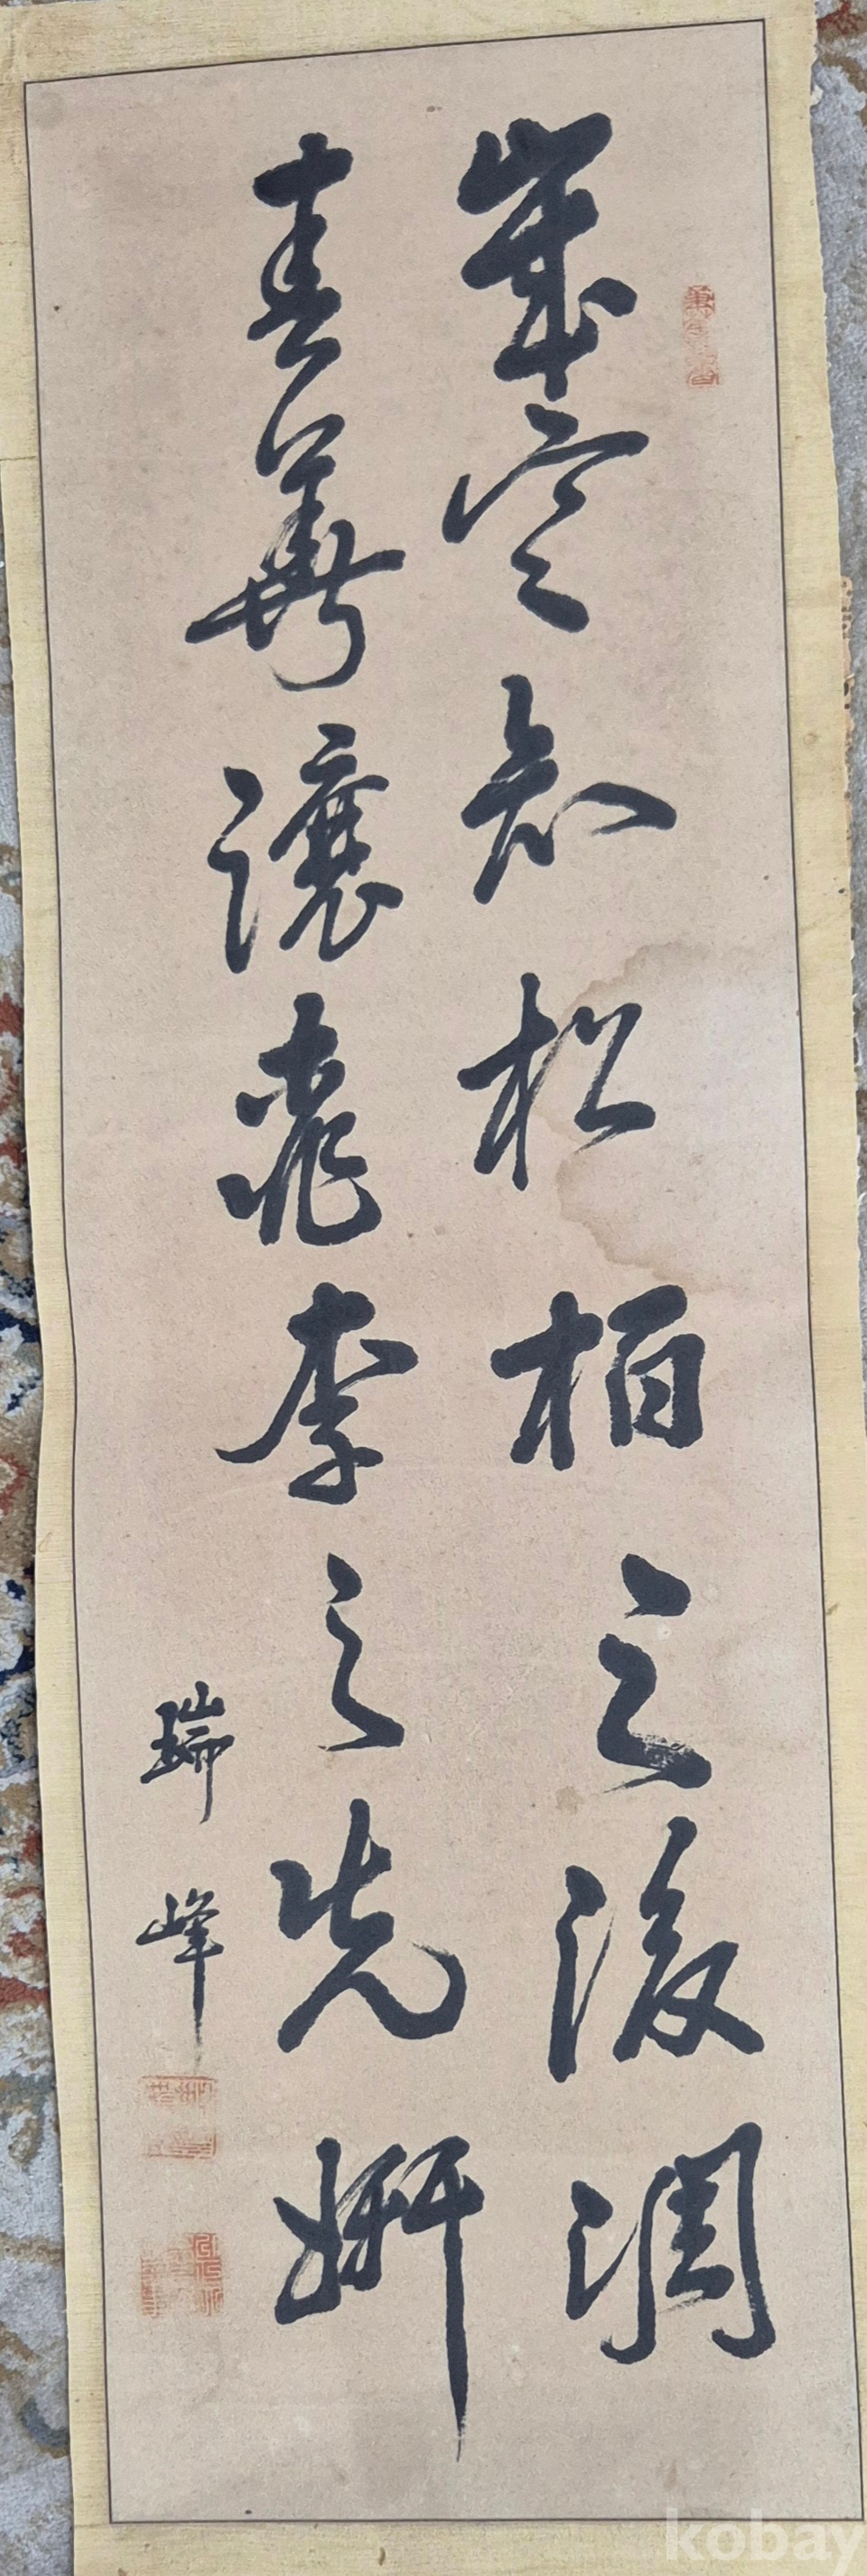 歲寒知松柏之後凋
春華讓桃李之先妍
瑞峰
kobay